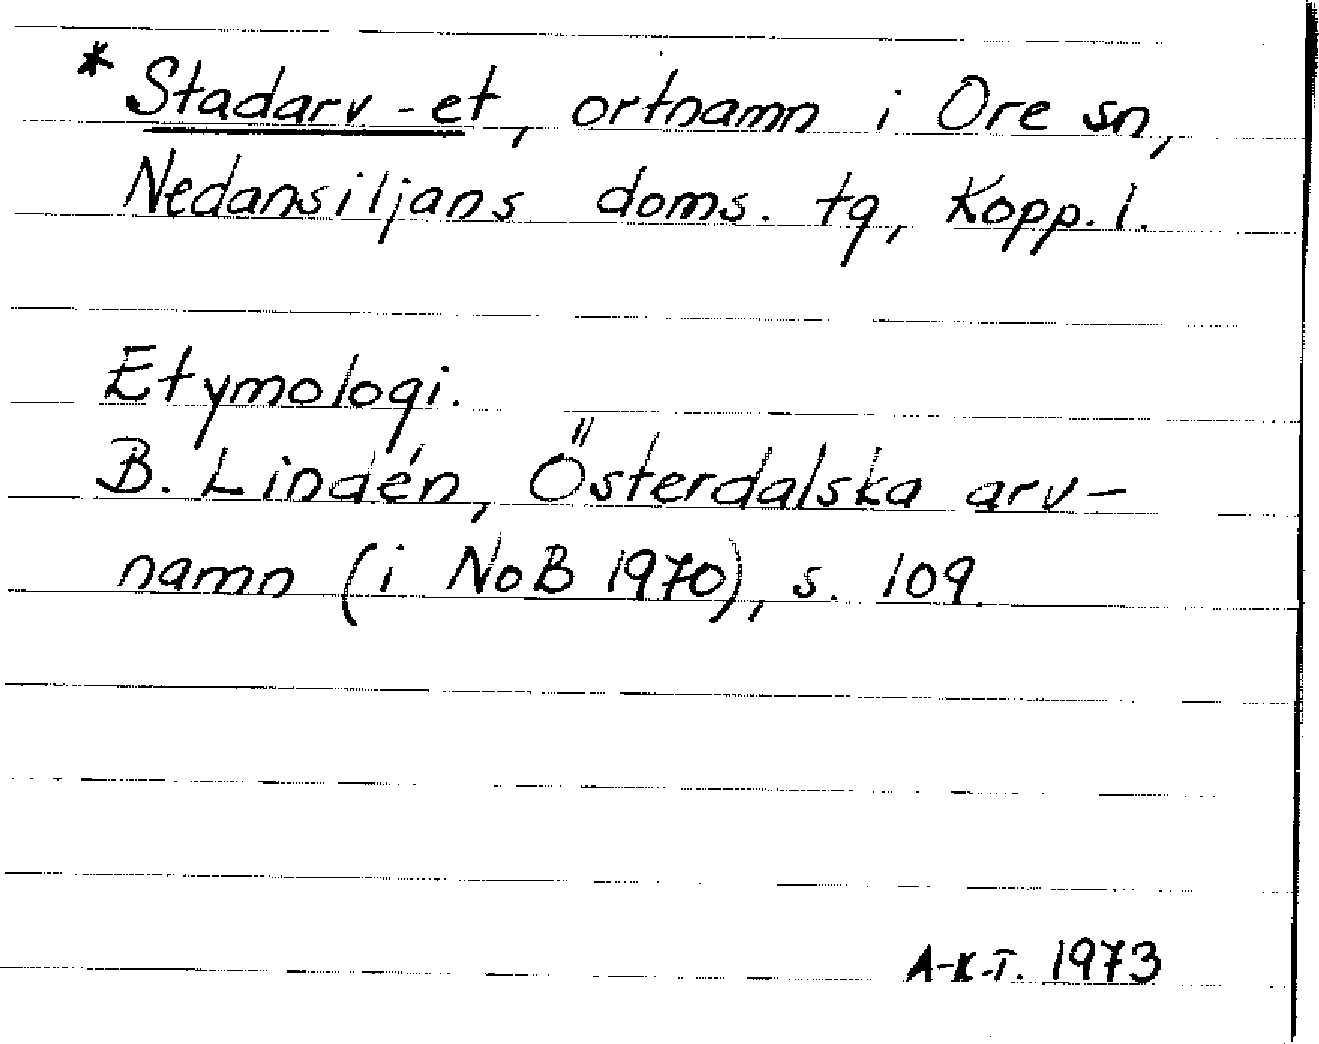 * Stadarv -et, ortnamn i Ore sn,
Nedansiljans doms. tg, Kopp. l.
Etymologi.
B. Lindén, Österdalska arv-
namn (i NoB 1970), s. 109.
A-K.T. 1973